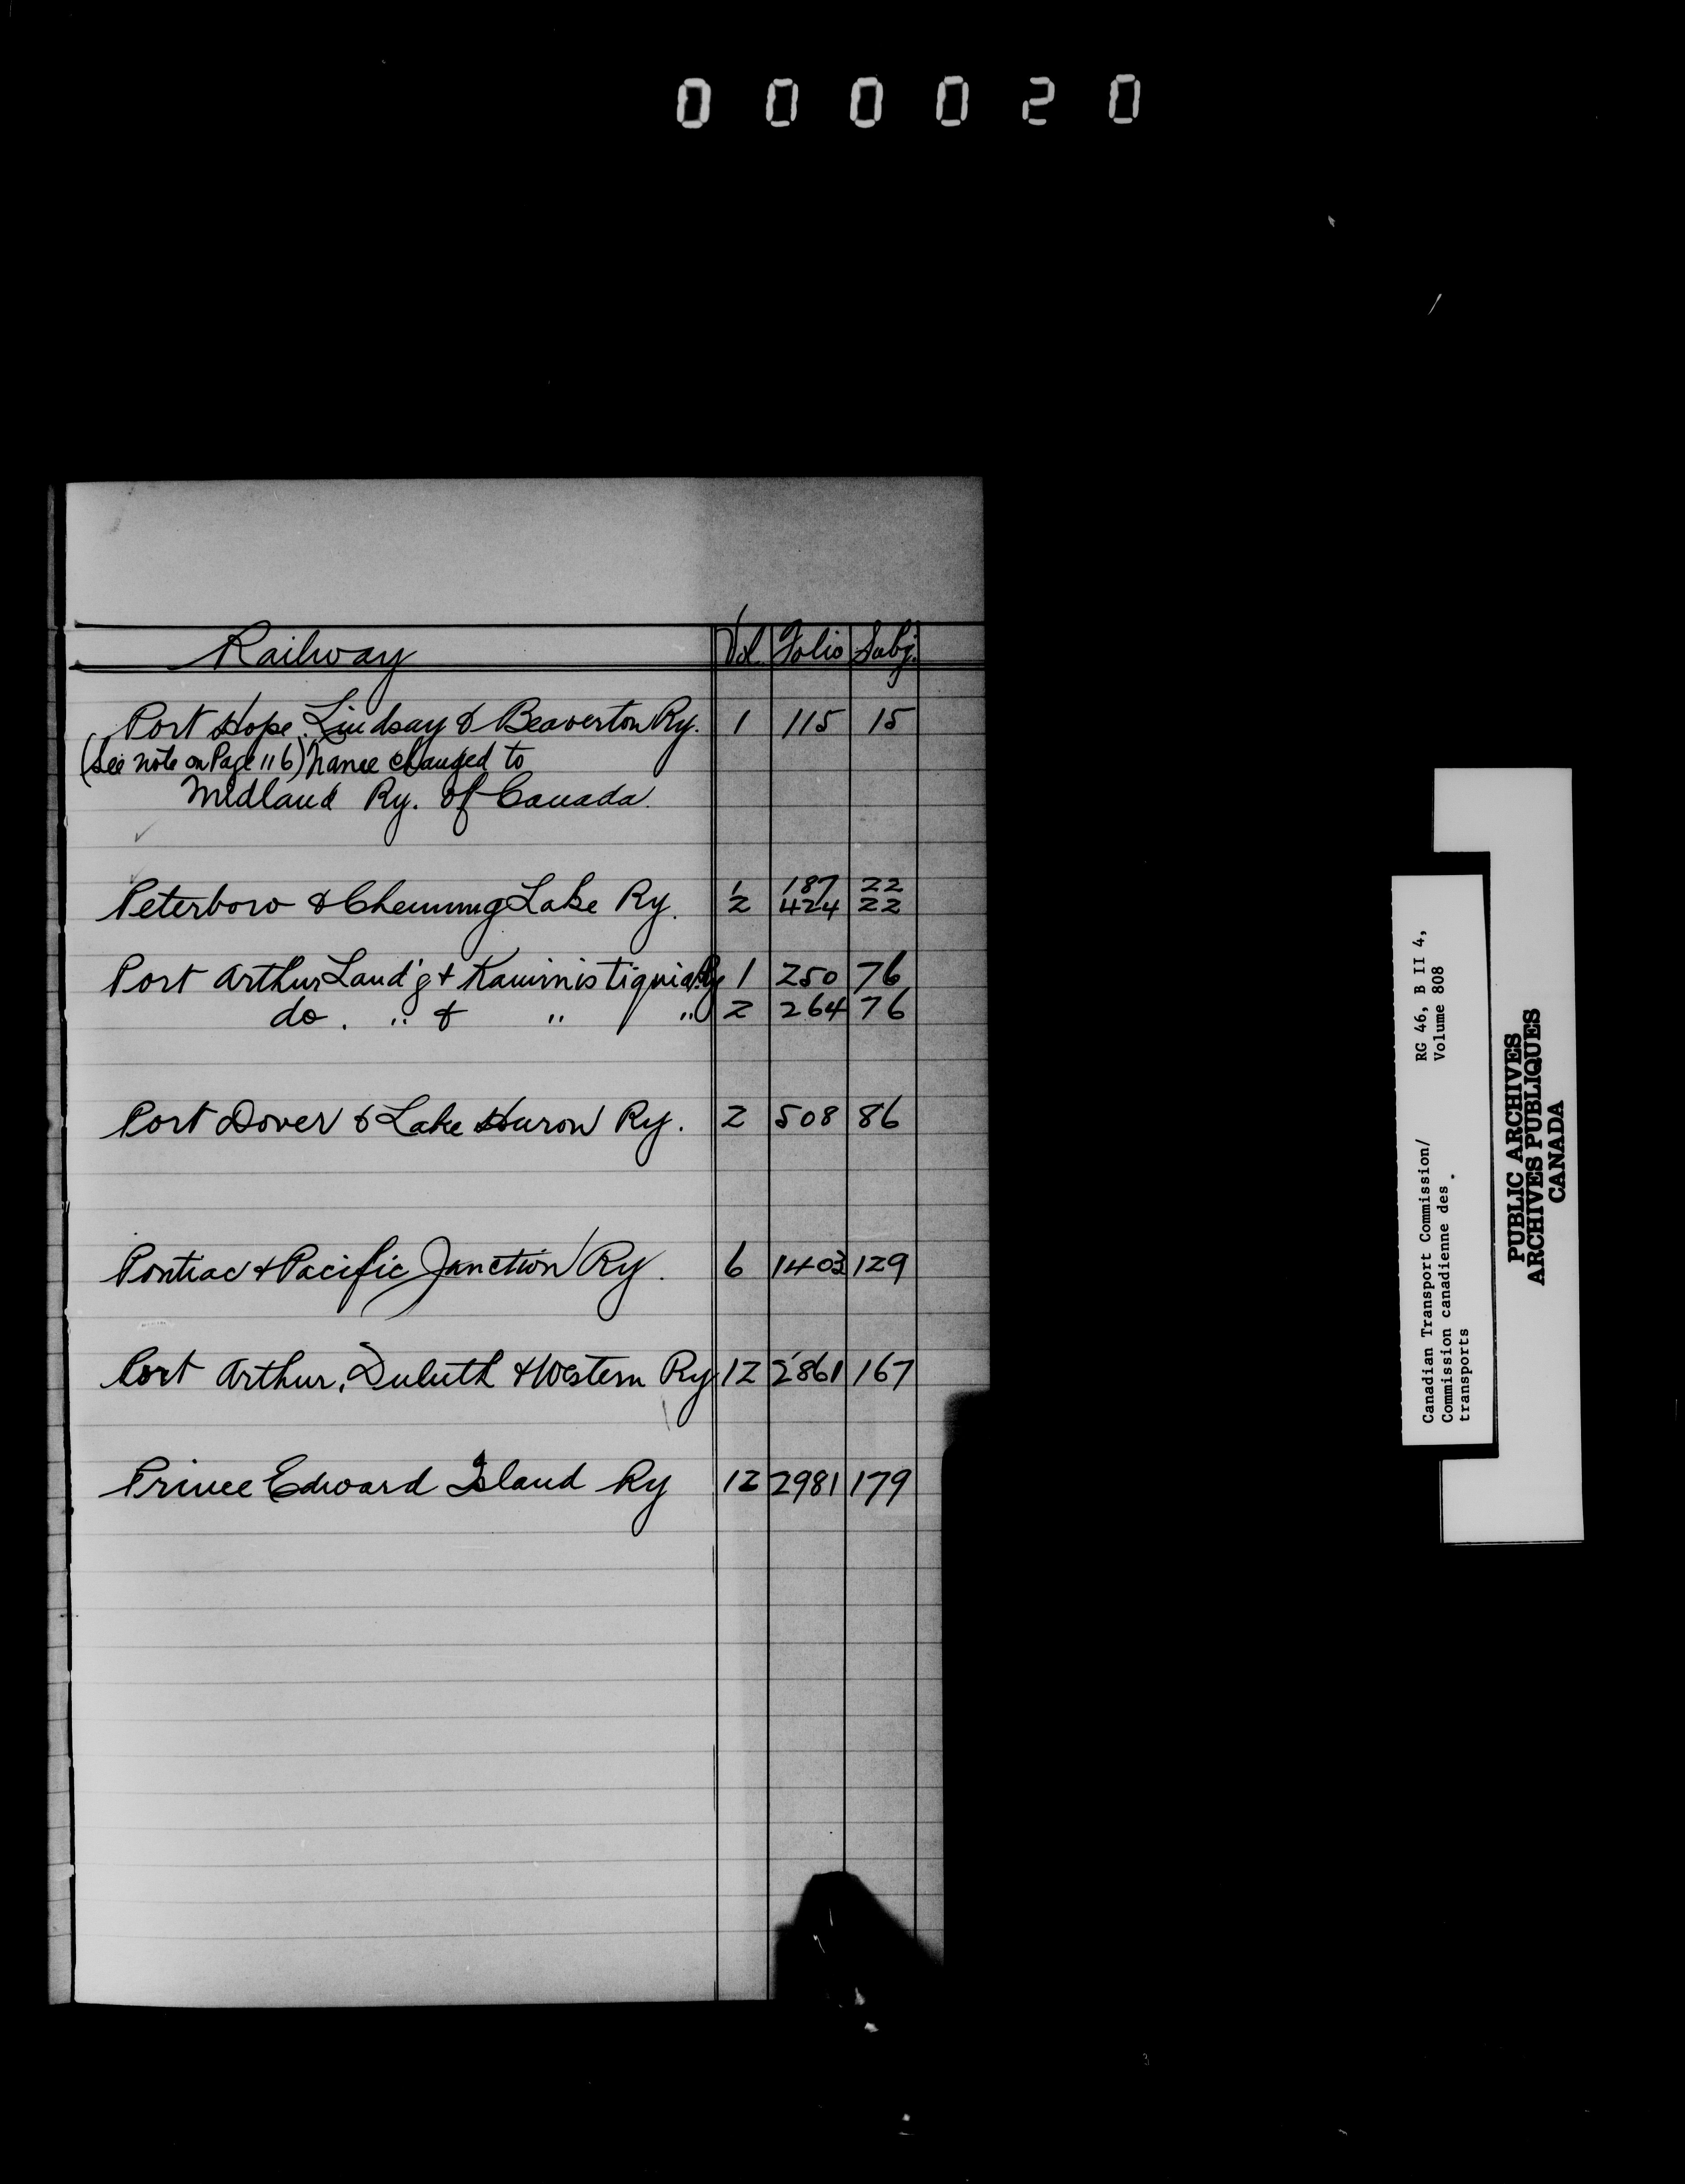 000020
Railway Vol. Folio Subj.
Port Hope, Lindsay & Beaverton Ry. 1 115 15
(See note on Page 116) Name changed to
Midland Ry. of Canada.
Peterboro & Chemung Lake Ry. 1 187 22
2 424 22
Port Arthur Land'g & Kaministiquia Ry 1 250 76
do. " & " " 2 264 76
Port Dover & Lake Huron Ry. 2 508 86
Pontiac & Pacific Junction Ry. 6 1403 129
Port Arthur, Duluth & Western Ry 12 2861 167
Prince Edward Island Ry 12 2981 179
Canadian Transport Commission/ RG 46, B II 4,
Commission canadienne des Volume 808
transports
PUBLIC ARCHIVES
ARCHIVES PUBLIQUES
CANADA